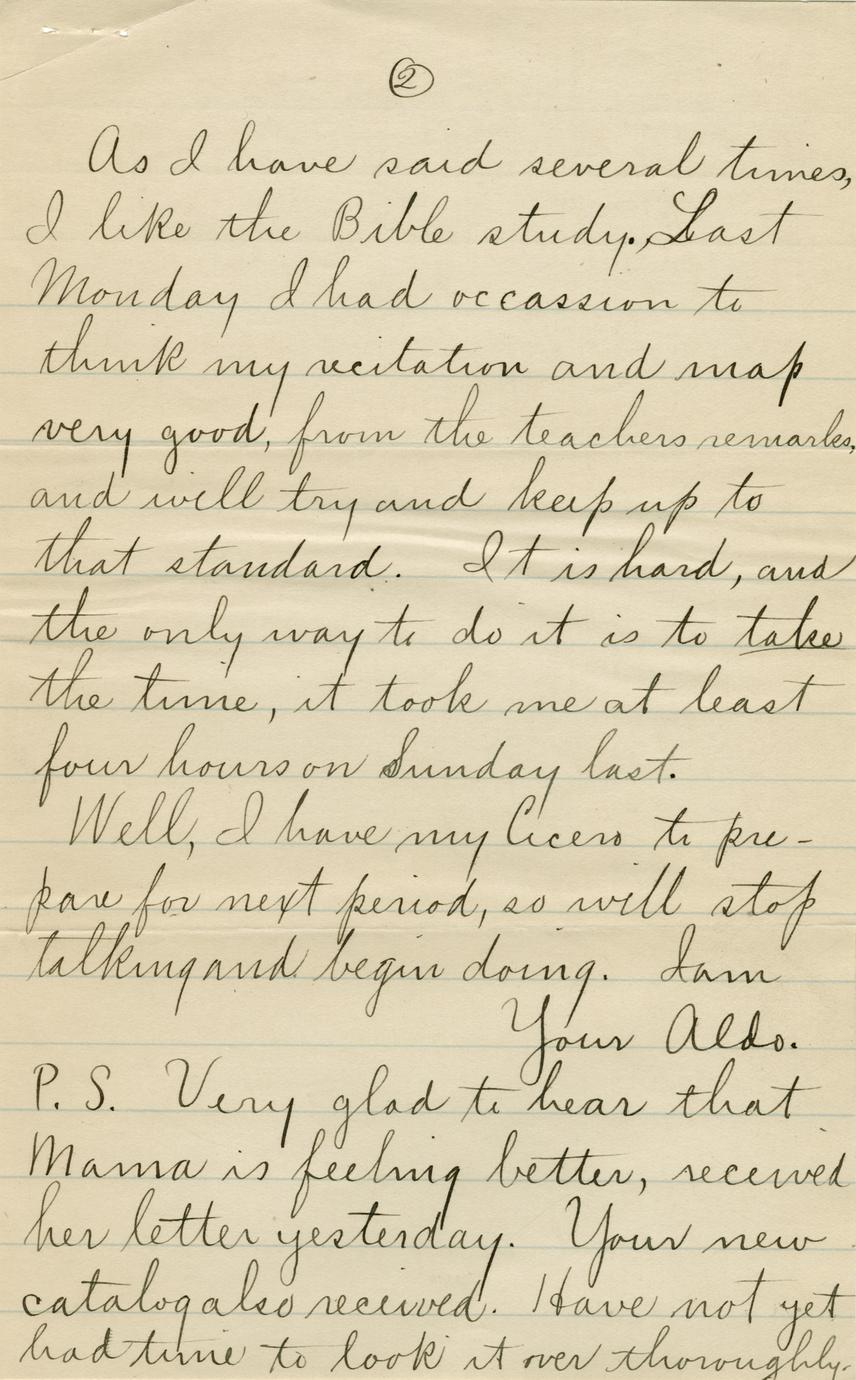 2
As I have said several times,
I like the Bible study. Last
Monday I had occassion to
think my recitation and map
very good, from the teachers remarks,
and will try and keep up to
that standard. It is hard, and
the only way to do it is to take
the time, it took me at least
four hours on Sunday last.
Well, I have my Cicero to pre-
pare for next period, so will stop
talking and begin doing. I am
Your Aldo.
P. S. Very glad to hear that
Mama is feeling better, received
her letter yesterday. Your new
catalog also received. Have not yet
had time to look it over thoroughly.